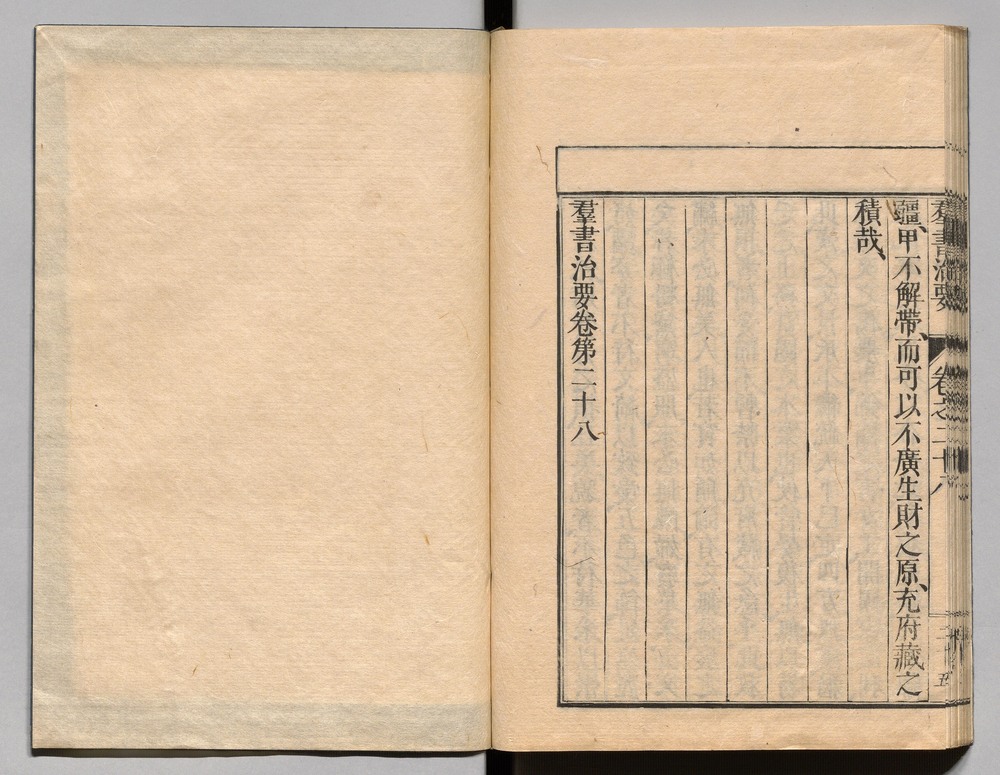 羣書治要 卷之二十八
疆、甲不解帶、而可以不廣生財之原、充府藏之
積哉、
羣書治要卷第二十八